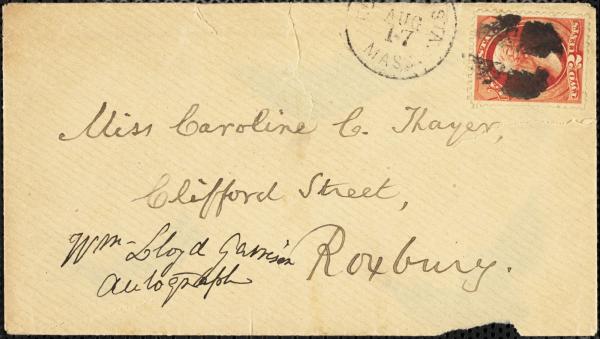 STA.
AUG
17
MASS.
Miss Caroline C. Thayer,
Clifford Street,
Wm. Lloyd Garrison
autograph
Roxbury.